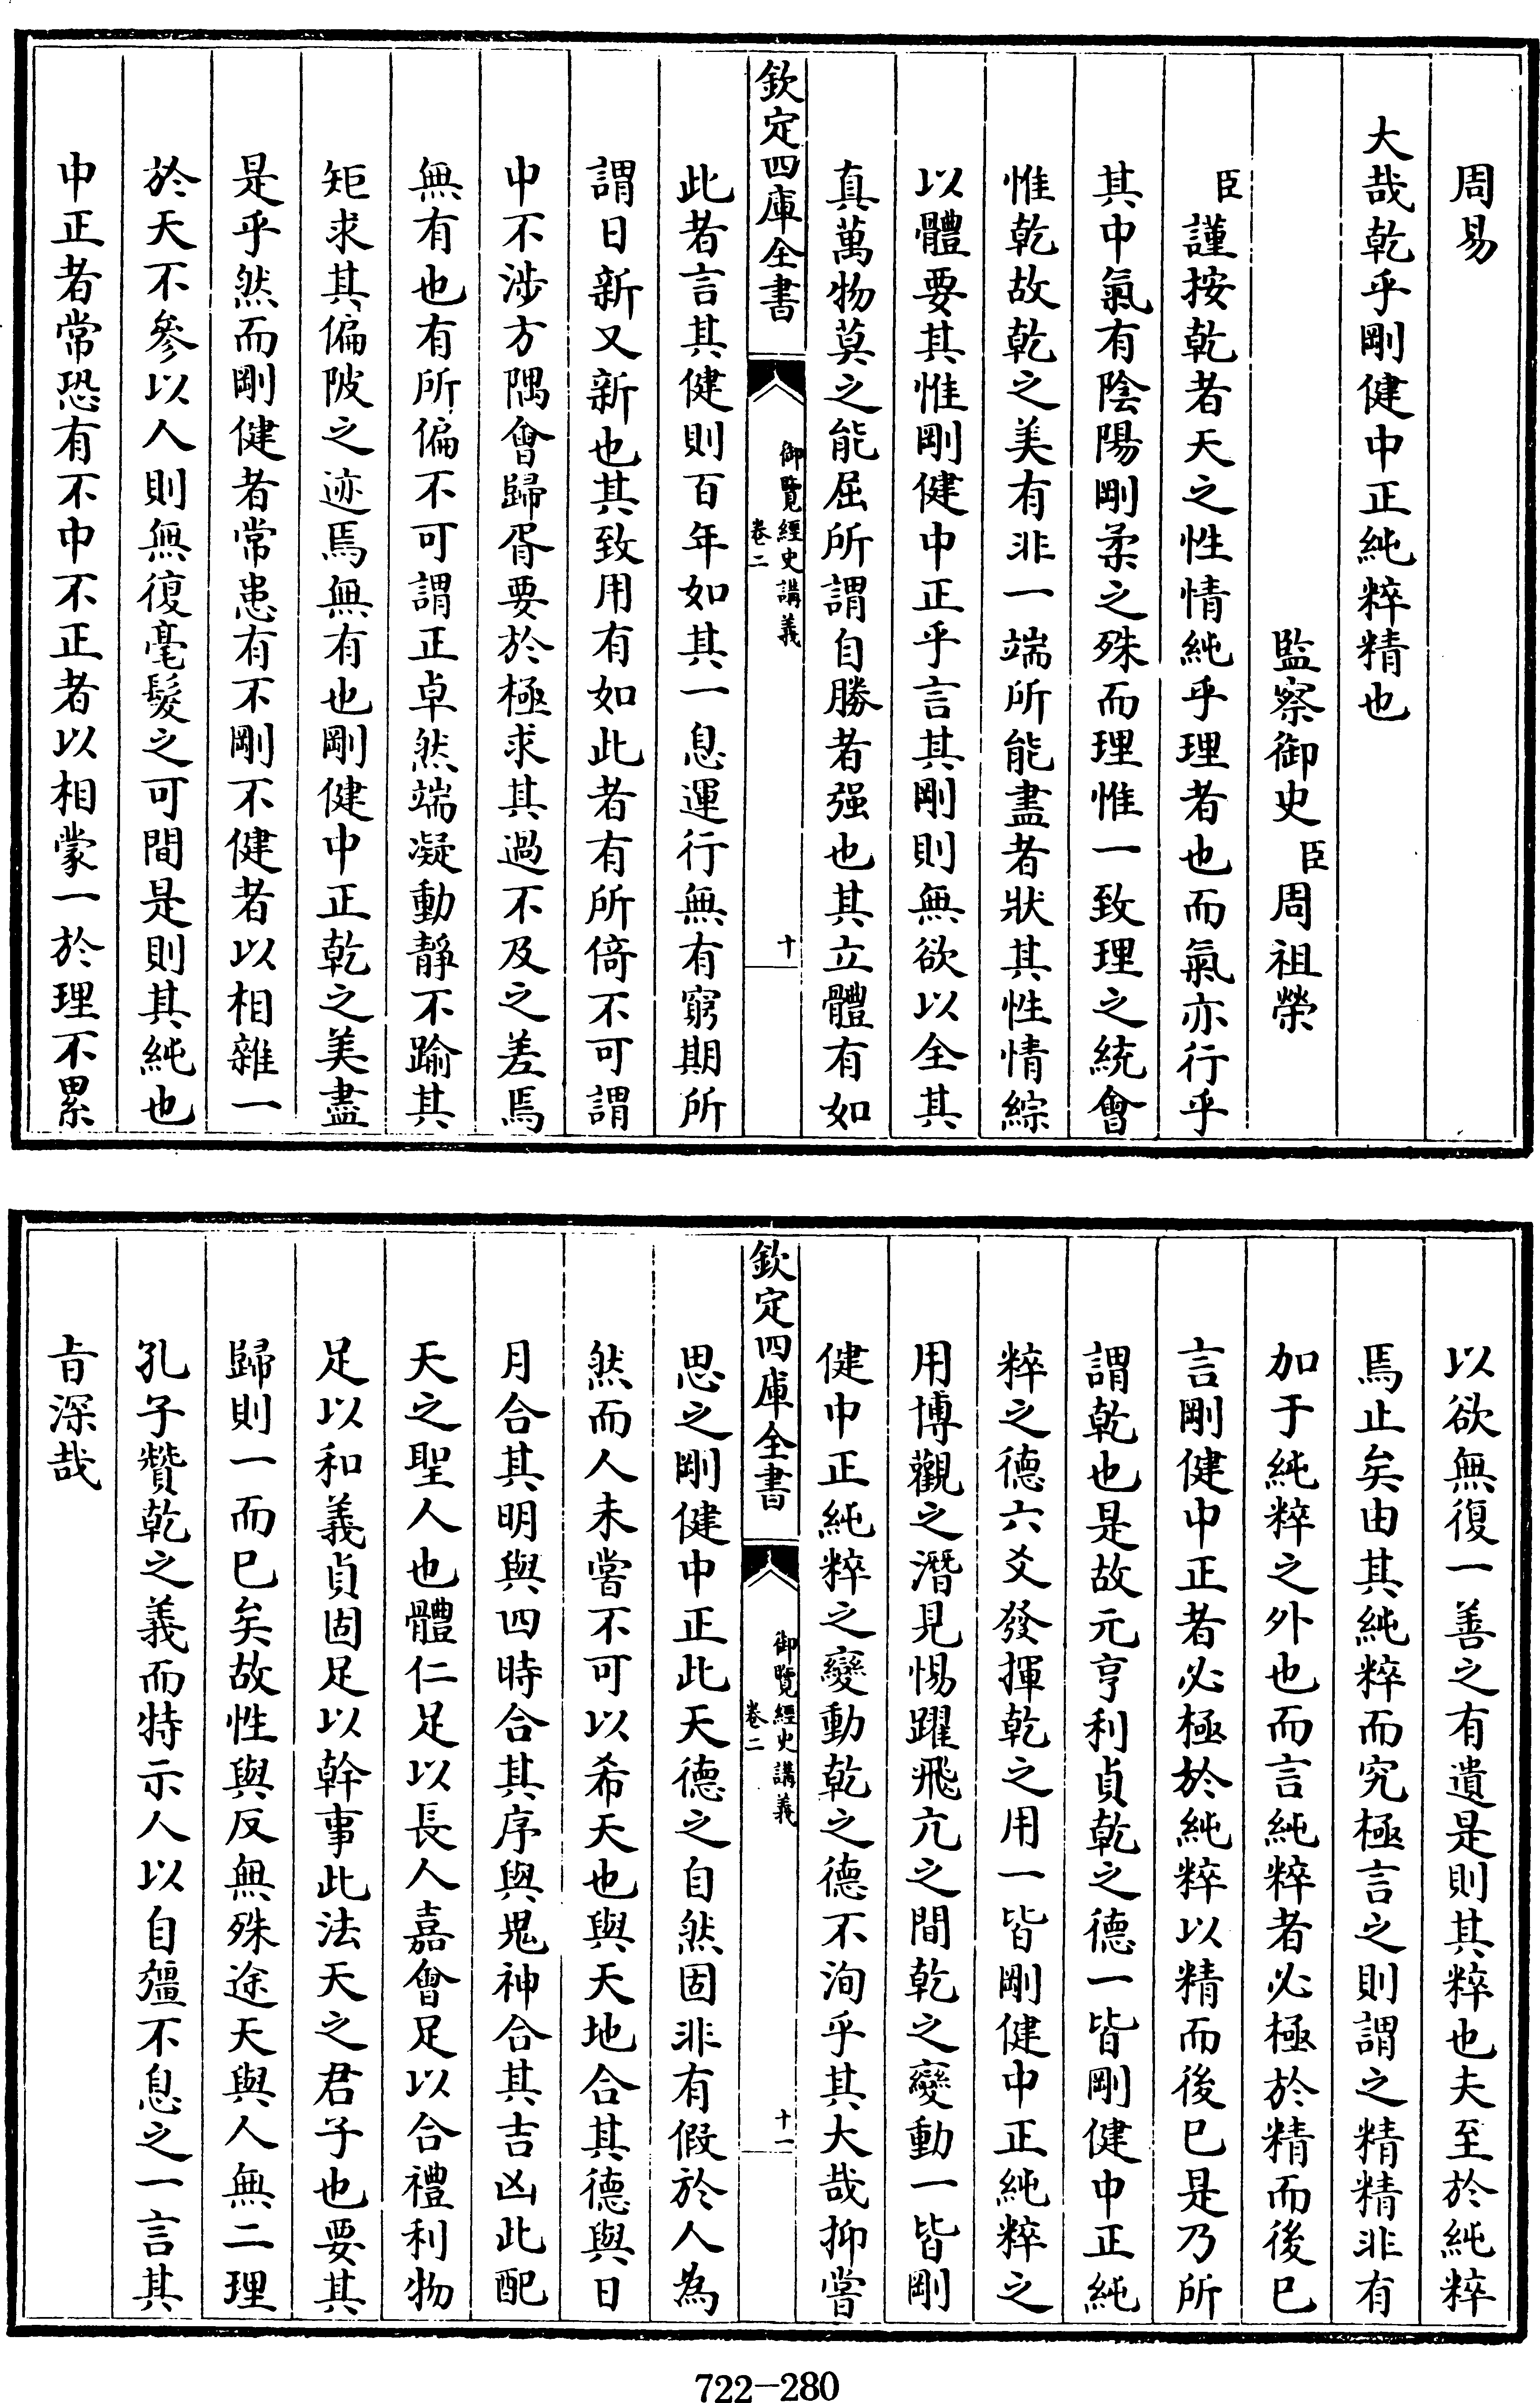 周易
大哉乾乎剛健中正純粹精也
監察御史臣周祖榮
臣謹按乾者天之性情純乎理者也而氣亦行乎
其中氣有陰陽剛柔之殊而理惟一致理之統會
惟乾故乾之美有非一端所能盡者狀其性情綜
以體要其惟剛健中正乎言其剛則無欲以全其
真萬物莫之能屈所謂自勝者强也其立體有如
欽定四庫全書
御覽經史講義
卷二
十
此者言其健則百年如其一息運行無有窮期所
謂日新又新也其致用有如此者有所倚不可謂
中不涉方隅會歸胥要於極求其過不及之差焉
無有也有所偏不可謂正卓然端凝動靜不踰其
矩求其偏陂之迹焉無有也剛健中正乾之美盡
是乎然而剛健者常患有不剛不健者以相雜一
於天不參以人則無復毫髮之可間是則其純也
中正者常恐有不中不正者以相蒙一於理不累
以欲無復一善之有遺是則其粹也夫至於純粹
焉止矣由其純粹而究極言之則謂之精精非有
加于純粹之外也而言純粹者必極於精而後已
言剛健中正者必極於純粹以精而後已是乃所
謂乾也是故元亨利貞乾之德一皆剛健中正純
粹之德六爻發揮乾之用一皆剛健中正純粹之
用博觀之潛見惕躍飛亢之間乾之變動一皆剛
健中正純粹之變動乾之德不洵乎其大哉抑嘗
欽定四庫全書
御覽經史講義
卷二
十一
思之剛健中正此天德之自然固非有假於人為
然而人未嘗不可以希天也與天地合其德與日
月合其明與四時合其序與鬼神合其吉凶此配
天之聖人也體仁足以長人嘉會足以合禮利物
足以和義貞固足以幹事此法天之君子也要其
歸則一而已矣故性與反無殊途天與人無二理
孔子贊乾之義而特示人以自彊不息之一言其
旨深哉
722-280